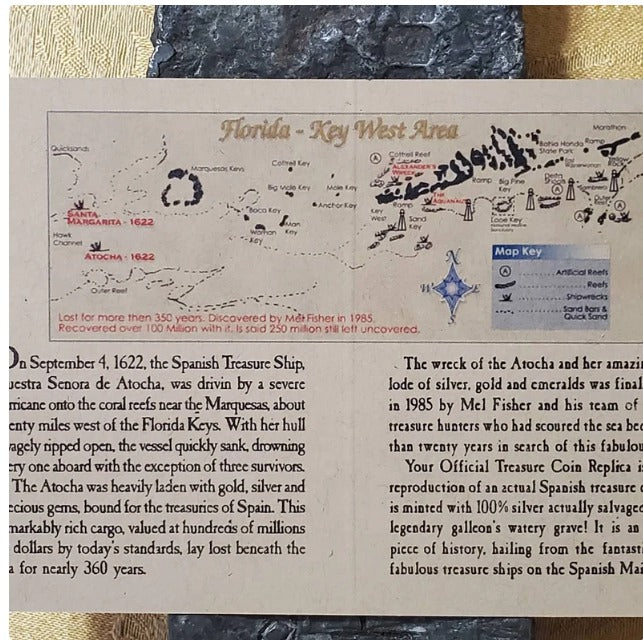 Florida - Key West Area
Quicksands
Marquesas Keys
Cottrel Key
Cottrel Reef
ALEXANDER'S
WRECK
Bahia Honda
State Park
Marathon
Big Mole Key
Mule Key
Ramp
Big Pine
Key
Boca Key
Anchor Key
Man
Key
Woman
Key
Key
West
Ramp
THE
AQUANAUT
Sand
Key
Looe Key
SANTA
MARGARITA - 1622
Hawk
Channel
ATOCHA - 1622
Outer Reef
N
W
S
Map Key
A ........ Artificial Reefs
........ Reefs
........ Shipwrecks
........ Sand Bars &
Quick Sand
Lost for more then 350 years. Discovered by Mel Fisher in 1985.
Recovered over 100 Million with it. Is said 250 million still left uncovered.
On September 4, 1622, the Spanish Treasure Ship,
uestra Senora de Atocha, was drivin by a severe
rricane onto the coral reefs near the Marquesas, about
enty miles west of the Florida Keys. With her hull
vagely ripped open, the vessel quickly sank, drowning
ery one aboard with the exception of three survivors.
The Atocha was heavily laden with gold, silver and
ecious gems, bound for the treasuries of Spain. This
markably rich cargo, valued at hundreds of millions
dollars by today's standards, lay lost beneath the
a for nearly 360 years.
The wreck of the Atocha and her amazi
lode of silver, gold and emeralds was final
in 1985 by Mel Fisher and his team of
treasure hunters who had scoured the sea be
than twenty years in search of this fabulou
Your Official Treasure Coin Replica i
reproduction of an actual Spanish treasure
is minted with 100% silver actually salvage
legendary galleon's watery grave! It is an
piece of history, hailing from the fantast
fabulous treasure ships on the Spanish Mai